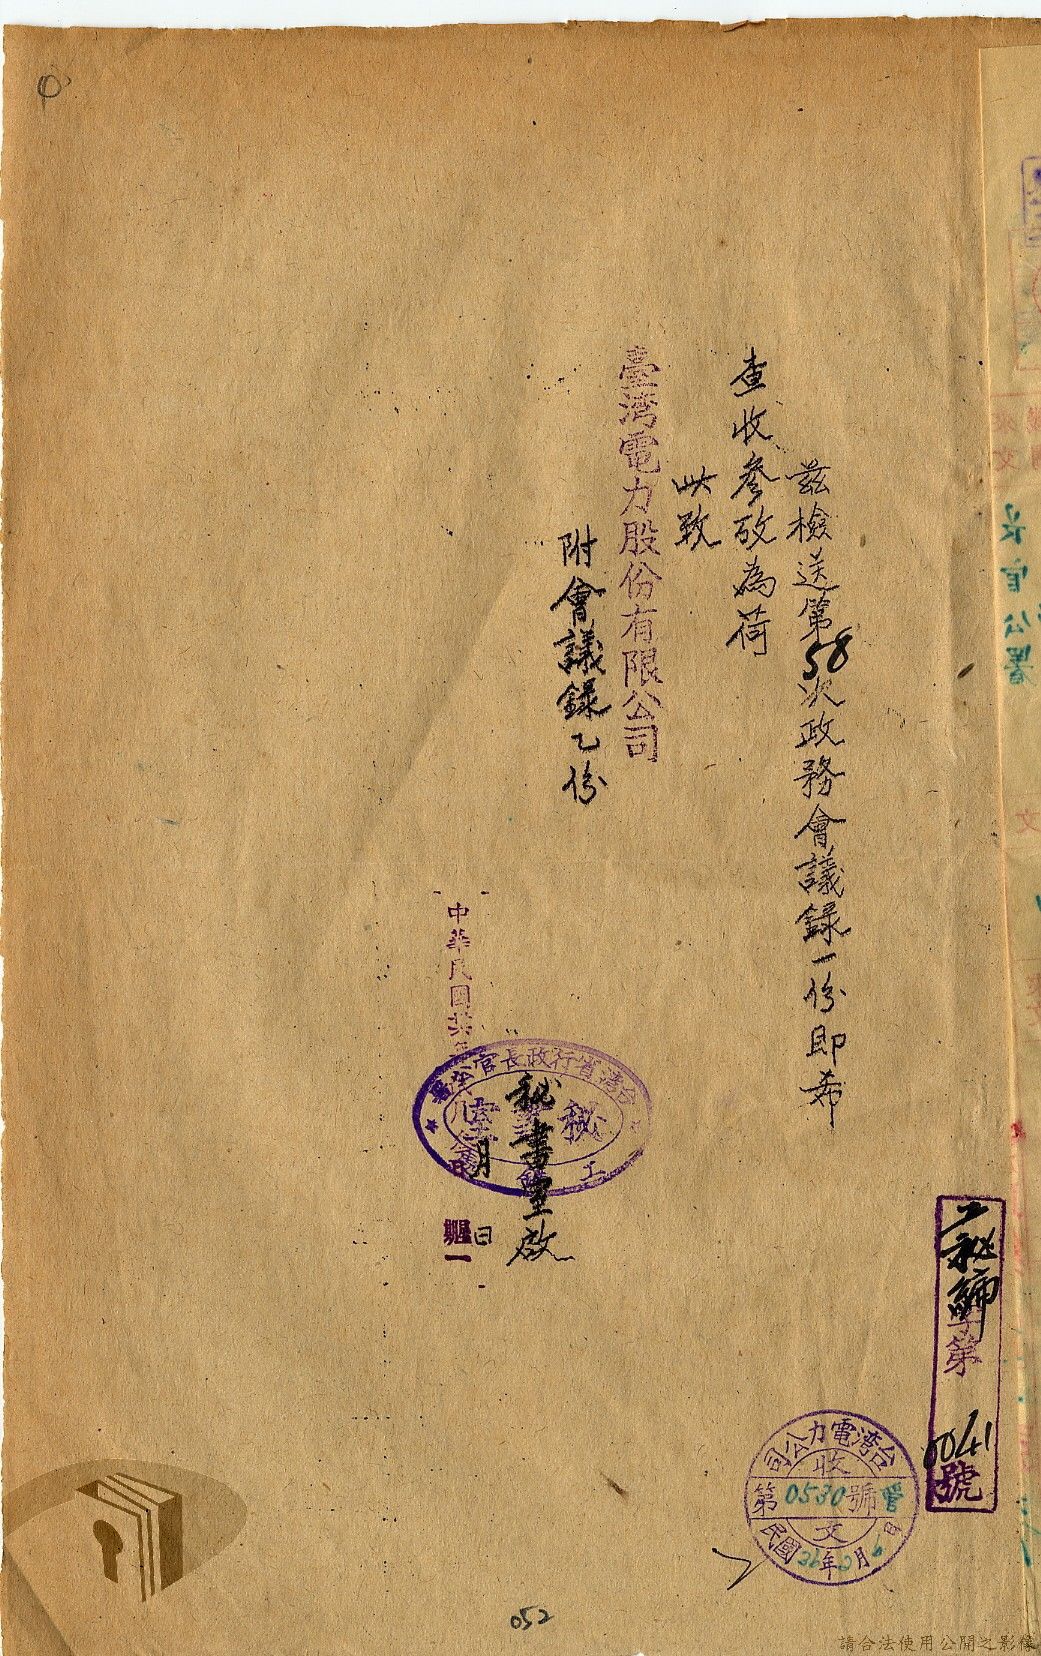 茲檢送第58次政務會議錄一份即希
查收參攷為荷
此致
臺灣電力股份有限公司
附會議錄乙份
秘書室啟
中華民國卅六年
月
日
台灣省行政長官公署
秘書室
工
字第0041號
台灣電力公司
收文
第0530號
民國36年2月6日
052
請合法使用公開之影像